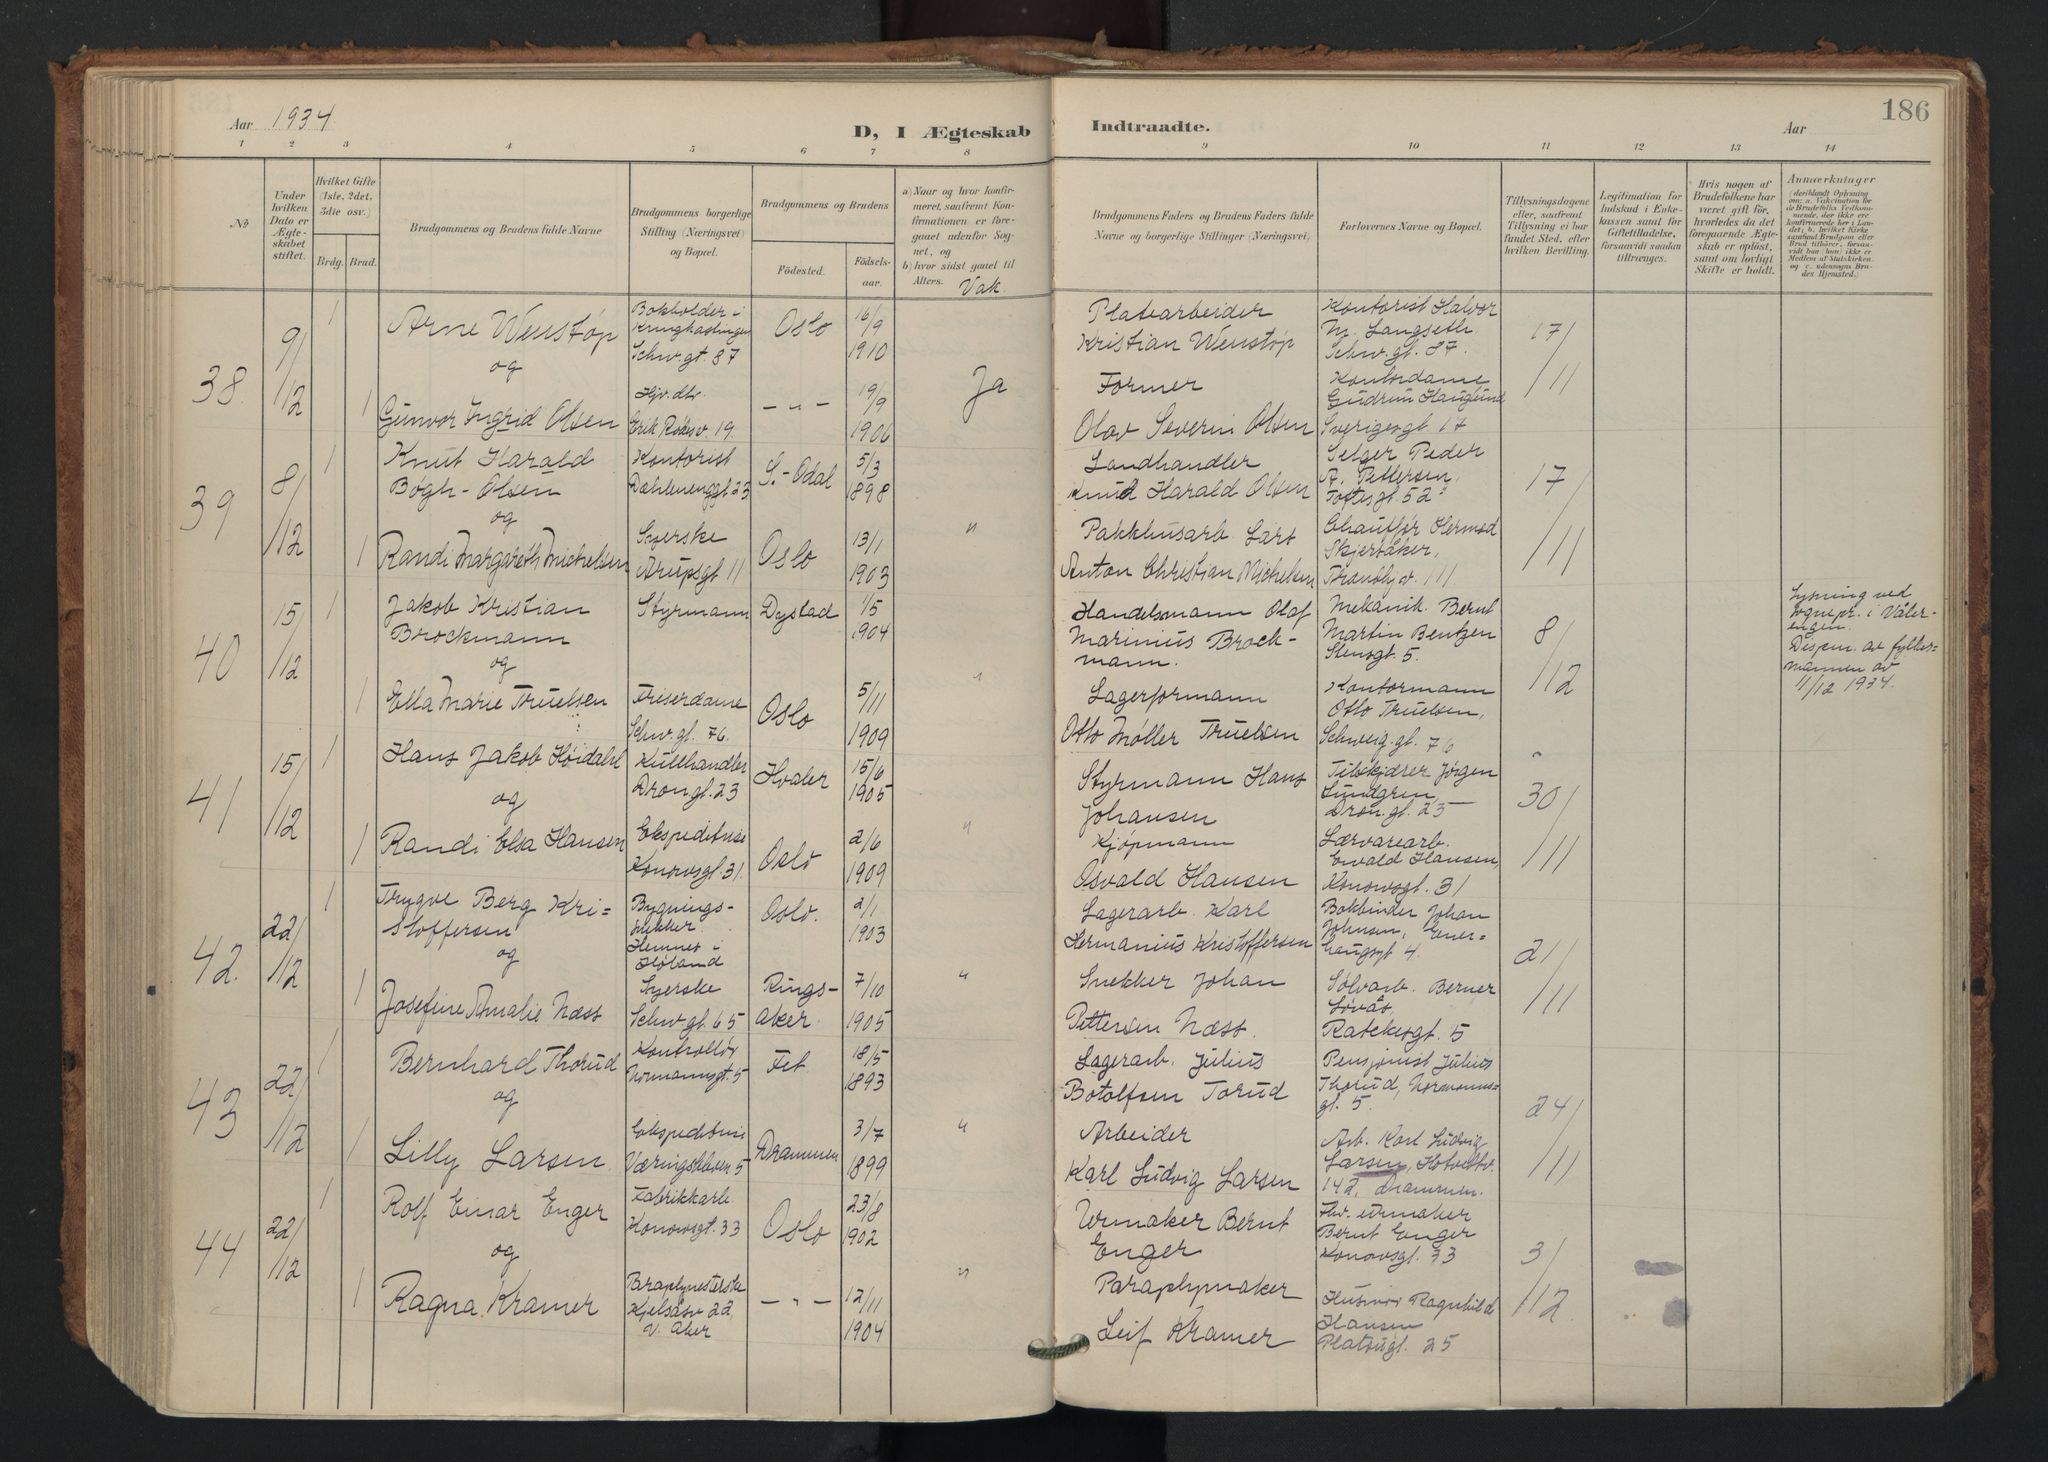 186
Aar 1934
D, I Ægteskab
Indtraadte.
Aar
1 2 3 4 5 6 7 8 9 10 11 12 13 14
No
Under hvilken Dato er Ægteskabet stiftet.
Hvilket Gifte (1ste, 2det, 3die osv.)
Brdg. Brud.
Brudgommens og Brudens fulde Navne
Brudgommens borgerlige Stilling (Næringsvei) og Bopæl.
Brudgommens og Brudens
Födested.
Födsels-aar.
a) Naar og hvor konfirmeret, saafremt Konfirmationen er foregaaet udenfor Sognet, og
b) hvor sidst gaaet til Alters.
Vak.
Brudgommens Faders og Brudens Faders fulde Navne og borgerlige Stillinger (Næringsvei)
Forlovernes Navne og Bopæl.
Tillysningsdagene eller, saafremt Tillysning ei har fundet Sted, efter hvilken Bevilling.
Legitimation for Indskud i Enkekassen samt for Giftetilladelse, forsaavidt saadan tiltrænges.
Hvis nogen af Brudefolkene har været gift før, hvorledes da det foregaaende Ægteskab er oplöst, samt om lovligt Skifte er holdt.
Anmærkninger
(deriblandt Oplysning om: a. Vakcination for de Brudefolks Vedkommende, der ikke ere konfirmerede her i Landet; b. hvilket Kirkesamfund Brudgom eller Brud tilhører, forsavidt han (hun) ikke er Medlem af Statskirken, og c. udensogns Brudes Hjemsted.)
38. 9/12
1 Arne Wenstøp
Bokholder i
Kringkastingen
Schw.gt. 87
Oslo
16/9
1910
Platearbeider
Kristian Wenstøp
Kontorist Halvor
M. Langseth
Schw.gt. 87.
17/11
og
1 Gunvor Ingrid Olsen
Hjv. dtr.
19.
— " —
19/9
1906
Ja
Former
Olav Severin Olsen
Kontordame
Gudrun Hauglund
Sverigesgt 17
39 8/12
1 Knut Harald
Bøgh-Olsen
Kontorist
Dæhlenenggt 23
S.-Odal
5/3
1898
Landhandler
Knud Harald Olsen
Selger Peder
A. Pettersen,
Toftesgt 52
17/11
og
1 Randi Margareth Michelsen
Syerske
Arupsgt 11
Oslo
13/1
1903
"
Pakkhusarb. Lars
Anton Christian Michelsen
Chauffør Hermod
Skjerbåker,
Trondhj.v. 111.
40 15/12
1 Jakob Kristian
Brockmann
Styrmann
Dystad
1/5
1904
Handelsmann Olaf
Marinius Brock-
mann.
Mekanik. Bernt
Martin Bentzen
Stensgt. 5.
8/12
Lysning ved
sognepr. i Våler-
engen.
Dispen. av fylkes-
mannen av
11/12 1934.
og
1 Ella Marie Truelsen
Friserdame
Schw.gt. 76.
Oslo
5/11
1909
"
Lagerformann
Otto Møller Truelsen
Kontormann
Otto Truelsen,
Schweig.gt. 76
41 15/12
1 Hans Jakob Høidahl
Kullhandler
Dron.gt. 23
Hvaler
15/6
1905
Styrmann Hans
Johansen
Tilskjærer Jørgen
Lundgren,
Dron.gt. 25
30/11
og
1 Randi Elsa Hansen
Ekspeditrise
Konowsgt. 31.
Oslo
2/6
1909
"
Kjøpmann
Osvald Hansen
Lærvarearb.
Ewald Hansen,
Konowsgt. 31
42. 22/12
1 Trygve Berg Kri=
stoffersen
Bygnings-
snekker
Hemnes i
Høland
Oslo.
2/1
1903
Lagerarb. Karl
Hermanius Kristoffersen
Bokbinder Johan
Johnsen, Ener-
haugsgt 4.
21/11
og
1 Josefine Amalie Næss
Syerske
Schw.gt. 65
Rings-
aker.
7/10
1905
"
Snekker Johan
Pettersen Næss.
Sølvarb. Berner
Løvås,
Ratckesgt. 5
43 22/12
1 Bernhard Thorud
Kontrollør
Normannsgt. 5
Fet
18/5
1893
Lagerarb. Julius
Botolfsen Torud
Pensjonist Julius
Thorud, Normanns=
gt. 5.
24/11
og
1 Lilly Larsen
Ekspeditrise
5
Drammen
3/7
1899
"
Arbeider
Karl Ludvig Larsen
Arb. Karl Ludvig
Larsen, Hotveltv.
142, Drammen.
44 22/12
1 Rolf Einar Enger
Fabrikkarb.
Konowsgt. 33
Oslo
23/8
1902
Urmaker Bernt
Enger
Fhv. urmaker
Bernt Enger
Konowsgt. 33
3/12
og
1 Ragna Kramer
Kjelsåsv 22,
V. Aker
— " —
12/11
1904
"
Paraplymaker
Leif Kramer
Husmor Ragnhild
Hansen
Platougt. 25